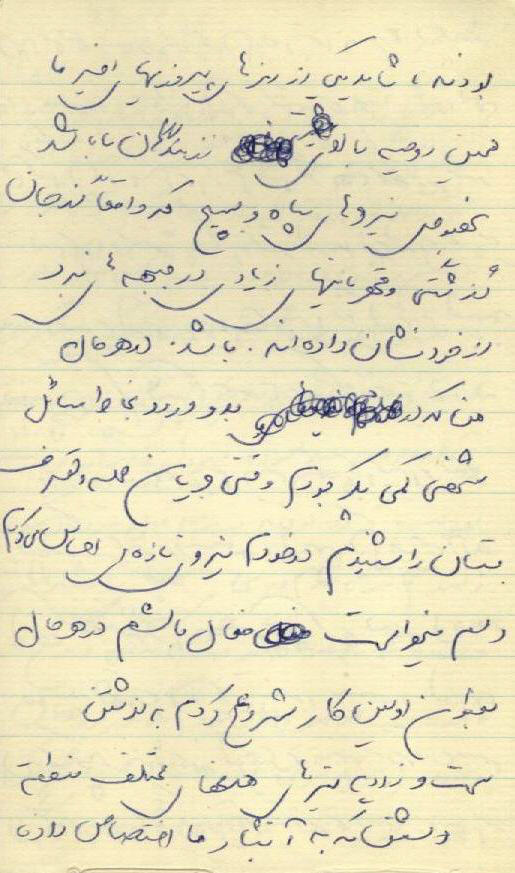 بودند، شاید یکی از رمزهای پیروزیهای اخیر ما
همین روحیه بالای رزمندگان ما باشد
بخصوص نیروهای سپاه و بسیج که واقعاً از جان
گذشتگی و قهرمانیهای زیادی در جبهه های نبرد
از خود نشان داده اند. باشد. در هر حال
من که در بدو ورود بخاطر مسائل
شخصی کمی پکر بودم وقتی جریان حمله و تصرف
بستان را شنیدم در خودم نیروی تازه ای احساس می کردم
دلم میخواست فعال باشم در هر حال
بعنوان اولین کار شروع کردم به نوشتن
سمت و زاویه تیرهای هدفهای مختلف منطقه
دشمن که به آتشبار ما اختصاص داده